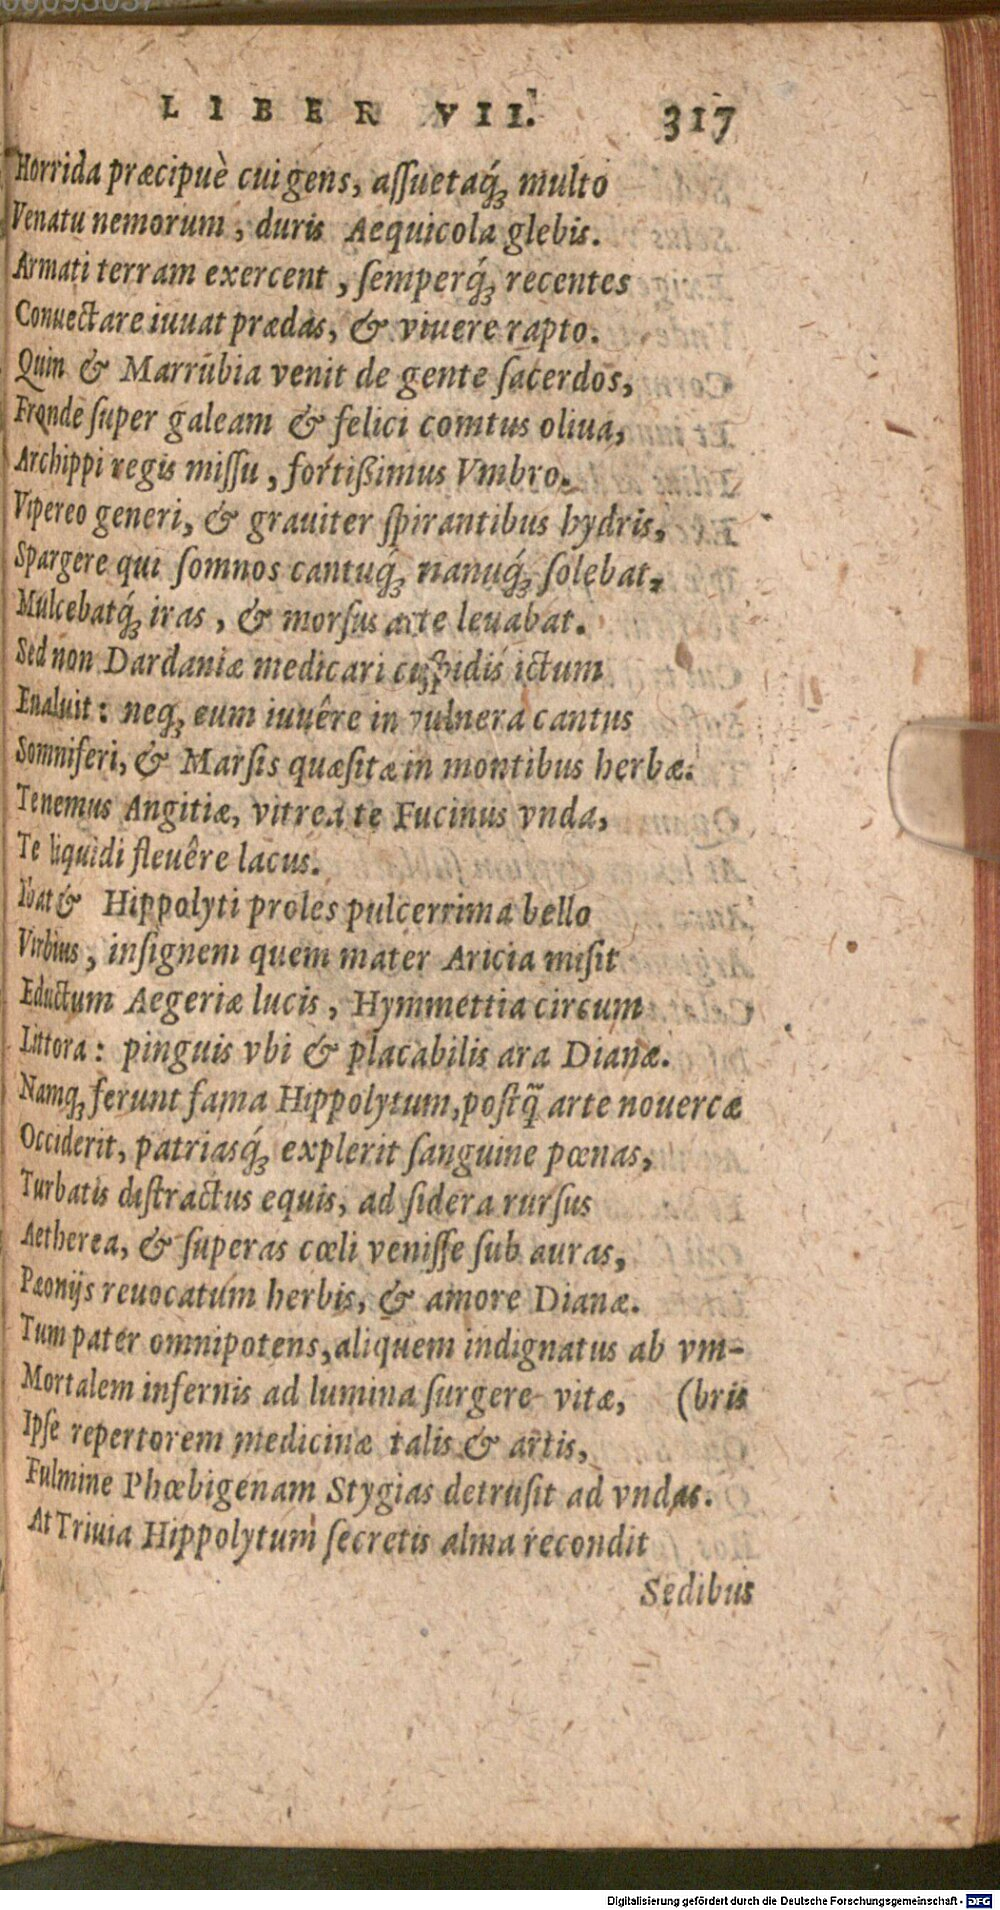 LIBER VII. 317
Horrida præcipuè cui gens, assuetaq́; multo
Venatu nemorum, duris Aequicola glebis.
Armati terram exercent, semperq́; recentes
Conuectare iuuat prædas, & viuere rapto.
Quin & Marrubia venit de gente sacerdos,
Fronde super galeam & felici comtus oliua,
Archippi regis missu, fortißimus Vmbro.
Vipereo generi, & grauiter spirantibus hydris,
Spargere qui somnos cantuq́; nanuq́; solebat,
Mulcebatq́; iras, & morsus arte leuabat.
Sed non Dardaniæ medicari cuspidis ictum
Eualuit: neq; eum iuuêre in vulnera cantus
Somniferi, & Marsis quæsitæ in montibus herbæ.
Te nemus Angitiæ, vitrea te Fucinus vnda,
Te liquidi fleuêre lacus.
Ibat & Hippolyti proles pulcerrima bello
Virbius, insignem quem mater Aricia misit
Eductum Aegeriæ lucis, Hymmettia circum
Littora: pinguis vbi & placabilis ara Dianæ.
Namq; ferunt fama Hippolytum, postq̃ arte nouercæ
Occiderit, patriasq́; explerit sanguine pœnas,
Turbatis distractus equis, ad sidera rursus
Aetherea, & superas cœli venisse sub auras,
Pæonijs reuocatum herbis, & amore Dianæ.
Tum pater omnipotens, aliquem indignatus ab vm-
Mortalem infernis ad lumina surgere vitæ, (bris
Ipse repertorem medicinæ talis & artis,
Fulmine Phœbigenam Stygias detrusit ad vndas.
At Triuia Hippolytum secretis alma recondit
Sedibus
Digitalisierung gefördert durch die Deutsche Forschungsgemeinschaft - DFG